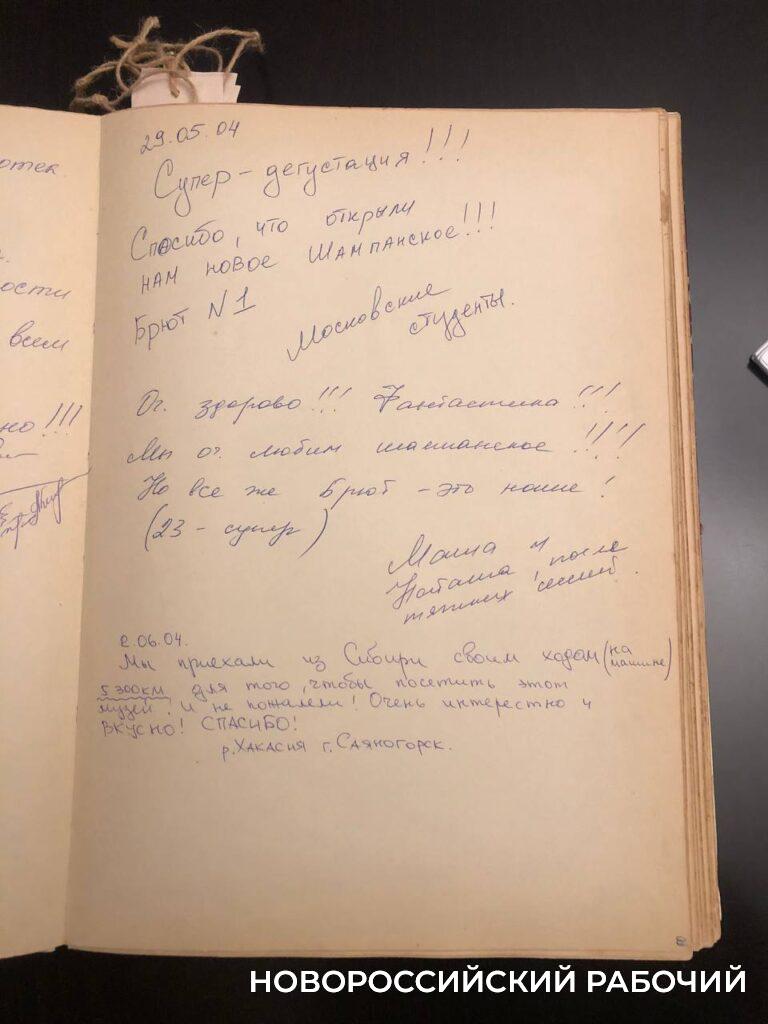 отек.
ости
всем
но!!!
29.05.04
Супер-дегустация!!!
Спасибо, что открыли
нам новое Шампанское!!!
Брют N1
Московские
студенты.
Оч. здорово!!! Фантастика!!!
Мы оч. любим шампанское!!!!
Но все же Брют - это наше!
(23 - супер)
Маша и
Наташа, после
тяжких
2.06.04.
Мы приехали из Сибири своим ходом (на машине)
5300км, для того, чтобы посетить этот
музей! и не пожалели! Очень интересно и
вкусно! СПАСИБО!
р.Хакасия г.Саяногорск.
НОВОРОССИЙСКИЙ РАБОЧИЙ